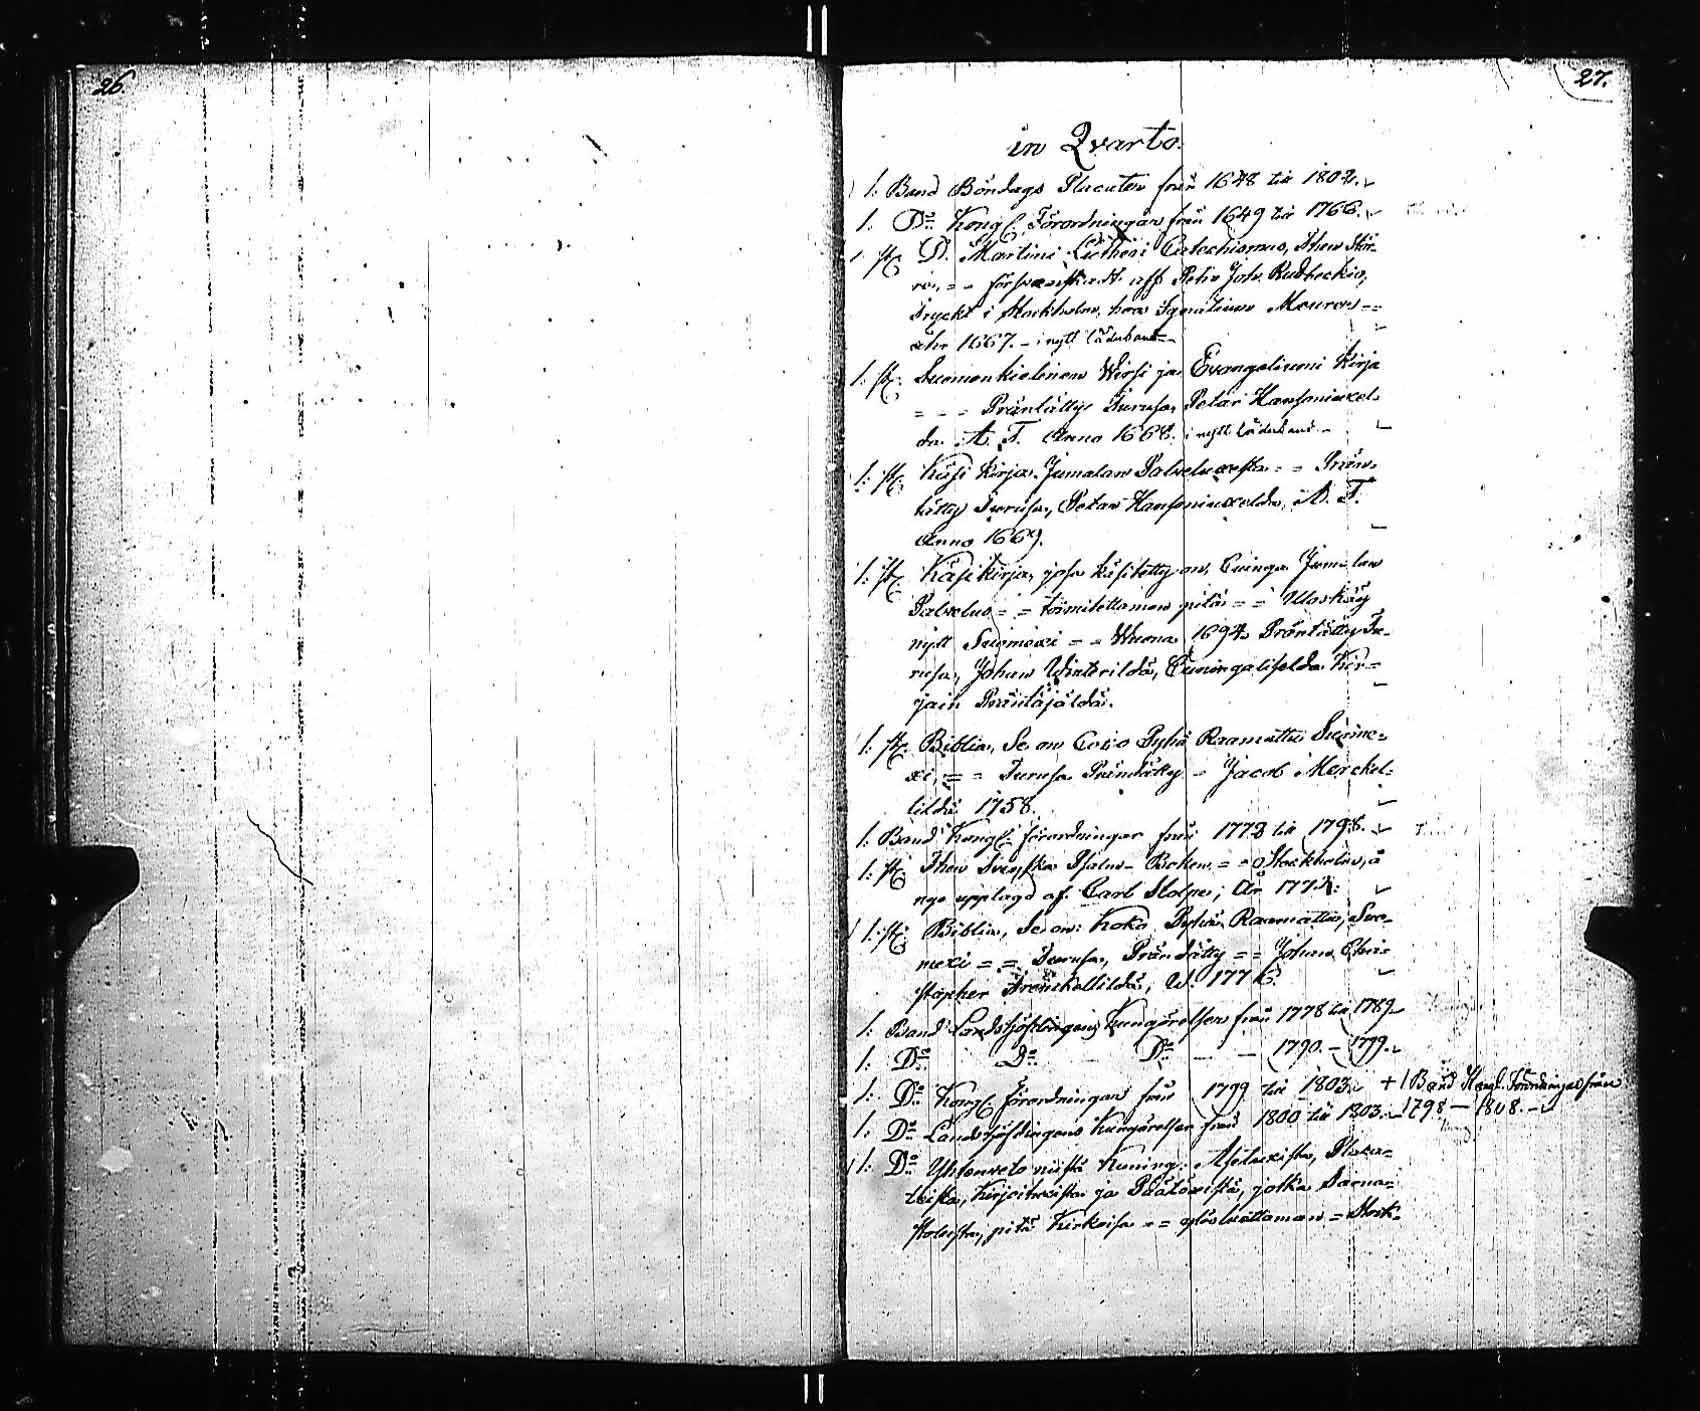 26.
27.
in Qvarto.
1: Band Böndags Placater från 1648 till 1802.
1: Do Kongl. Förordningar från 1649 till 1766.
1 st. D. Martini Lutheri Catechismus, Then Stör-
re, = - försvenskadt aff Petro Joh. Rudbeckio,
Tryckt i Stockholm, hoos Ignatium Meurer ==
åhr 1667. - i nytt läderband -
1: st. Suomenkielinen Wirsi ja Evangeliumi Kirja
= - - Präntätty Turusa, Petär Hansoniuxel-
da. A. T. Anno 1668. i nytt läderband -
1: st. Käsi Kirja Jumalan Palveluxesta = = Prän-
tätty Turusa, Petär Hansoniuxelda, A. T.
Anno 1669.
1: st. Käsikirja, josa käsitetty on, Cuinga Jumalan
Palvelus = = toimitettaman pitä = = Uloskäy
nytt Suomexi = = Wuona 1694. Präntätty Tu-
rusa, Johan Winterildä, Cuningaliselda Kir-
jain Präntäjäldä.
1: st. Biblia, Se on Coco Pyhä Raamattu Suome-
xi, = = Turusa Präntätty - Jacob Merckel-
lildä 1758.
1: Band Kongl. förordningar från 1772 till 1798.
1: st. Then Svenska Psalm-Boken = = Stockholm, å
nyo upplagd af Carl Stolpe; År 177
1: st. Biblia, Se on: Koko Pyhä Raamattu, Suo-
mexi = = Turusa, Präntätty = = Johan Chri-
stopher Frenckellildä, W. 1776.
1: Band Landshöfdingens Kungörelser från 1778 till 1789.
1: Do Do Do - - 1790. - 1799.
1: Do Kongl. förordningar från 1799 till 1803. + 1 Band Kongl. Förordningar från
1: Do Landshöfdingens Kungörelser från 1800 till 1803. 1798 - 1808. -
1: Do Yhtenveto niistä Kuning: Asetuxista, Placa-
teista, Kirjoituxista ja Päätöxistä, jotka Sarna-
stolista, pitä Kirkoisa = = ylösluettaman = Stock-